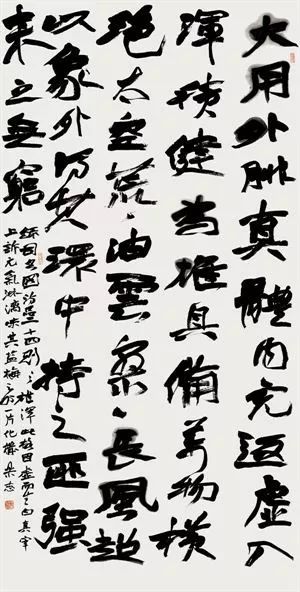 大用外腓真體內充返虛入
渾積健為雄具備萬物橫
絕太空荒々油雲寥々長風超
以象外得其環中持之匪强
來之無窮
司空圖詩品二十四則之雄渾此真宰
上訴元氣淋漓一片化機